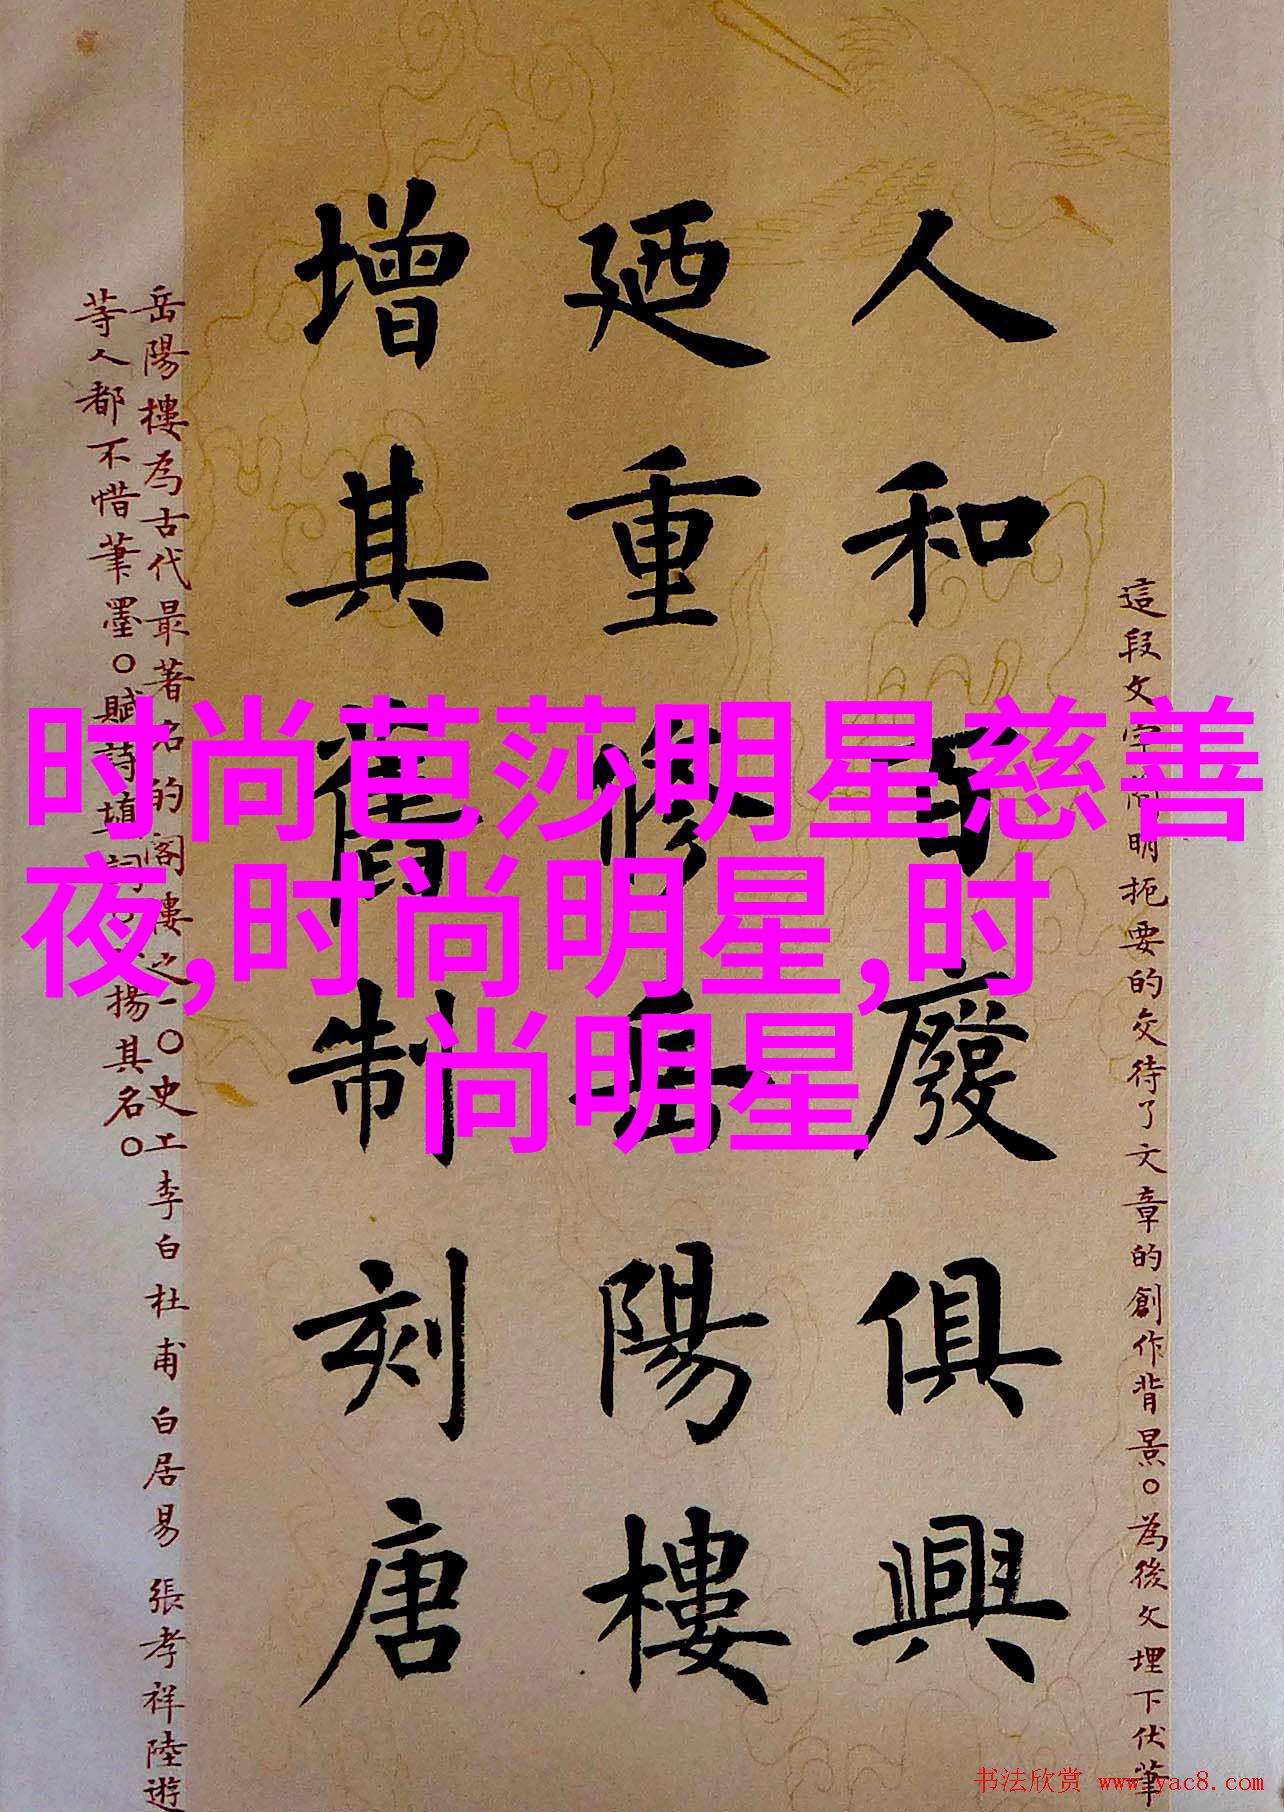 时尚芭莎明星慈善
夜,时尚明星,时
尚明星
這段文字簡明扼要的交待了文章的創作背景。為後文埋下伏筆
人和百廢俱興
廼重修岳陽樓
增其舊制刻唐
岳陽樓為古代最著名的阁樓之一。史上李白杜甫白居易張孝祥陸遊
等人都不惜筆墨。賦詩填詞。揚其名。
书法欣赏 www.yac8.com